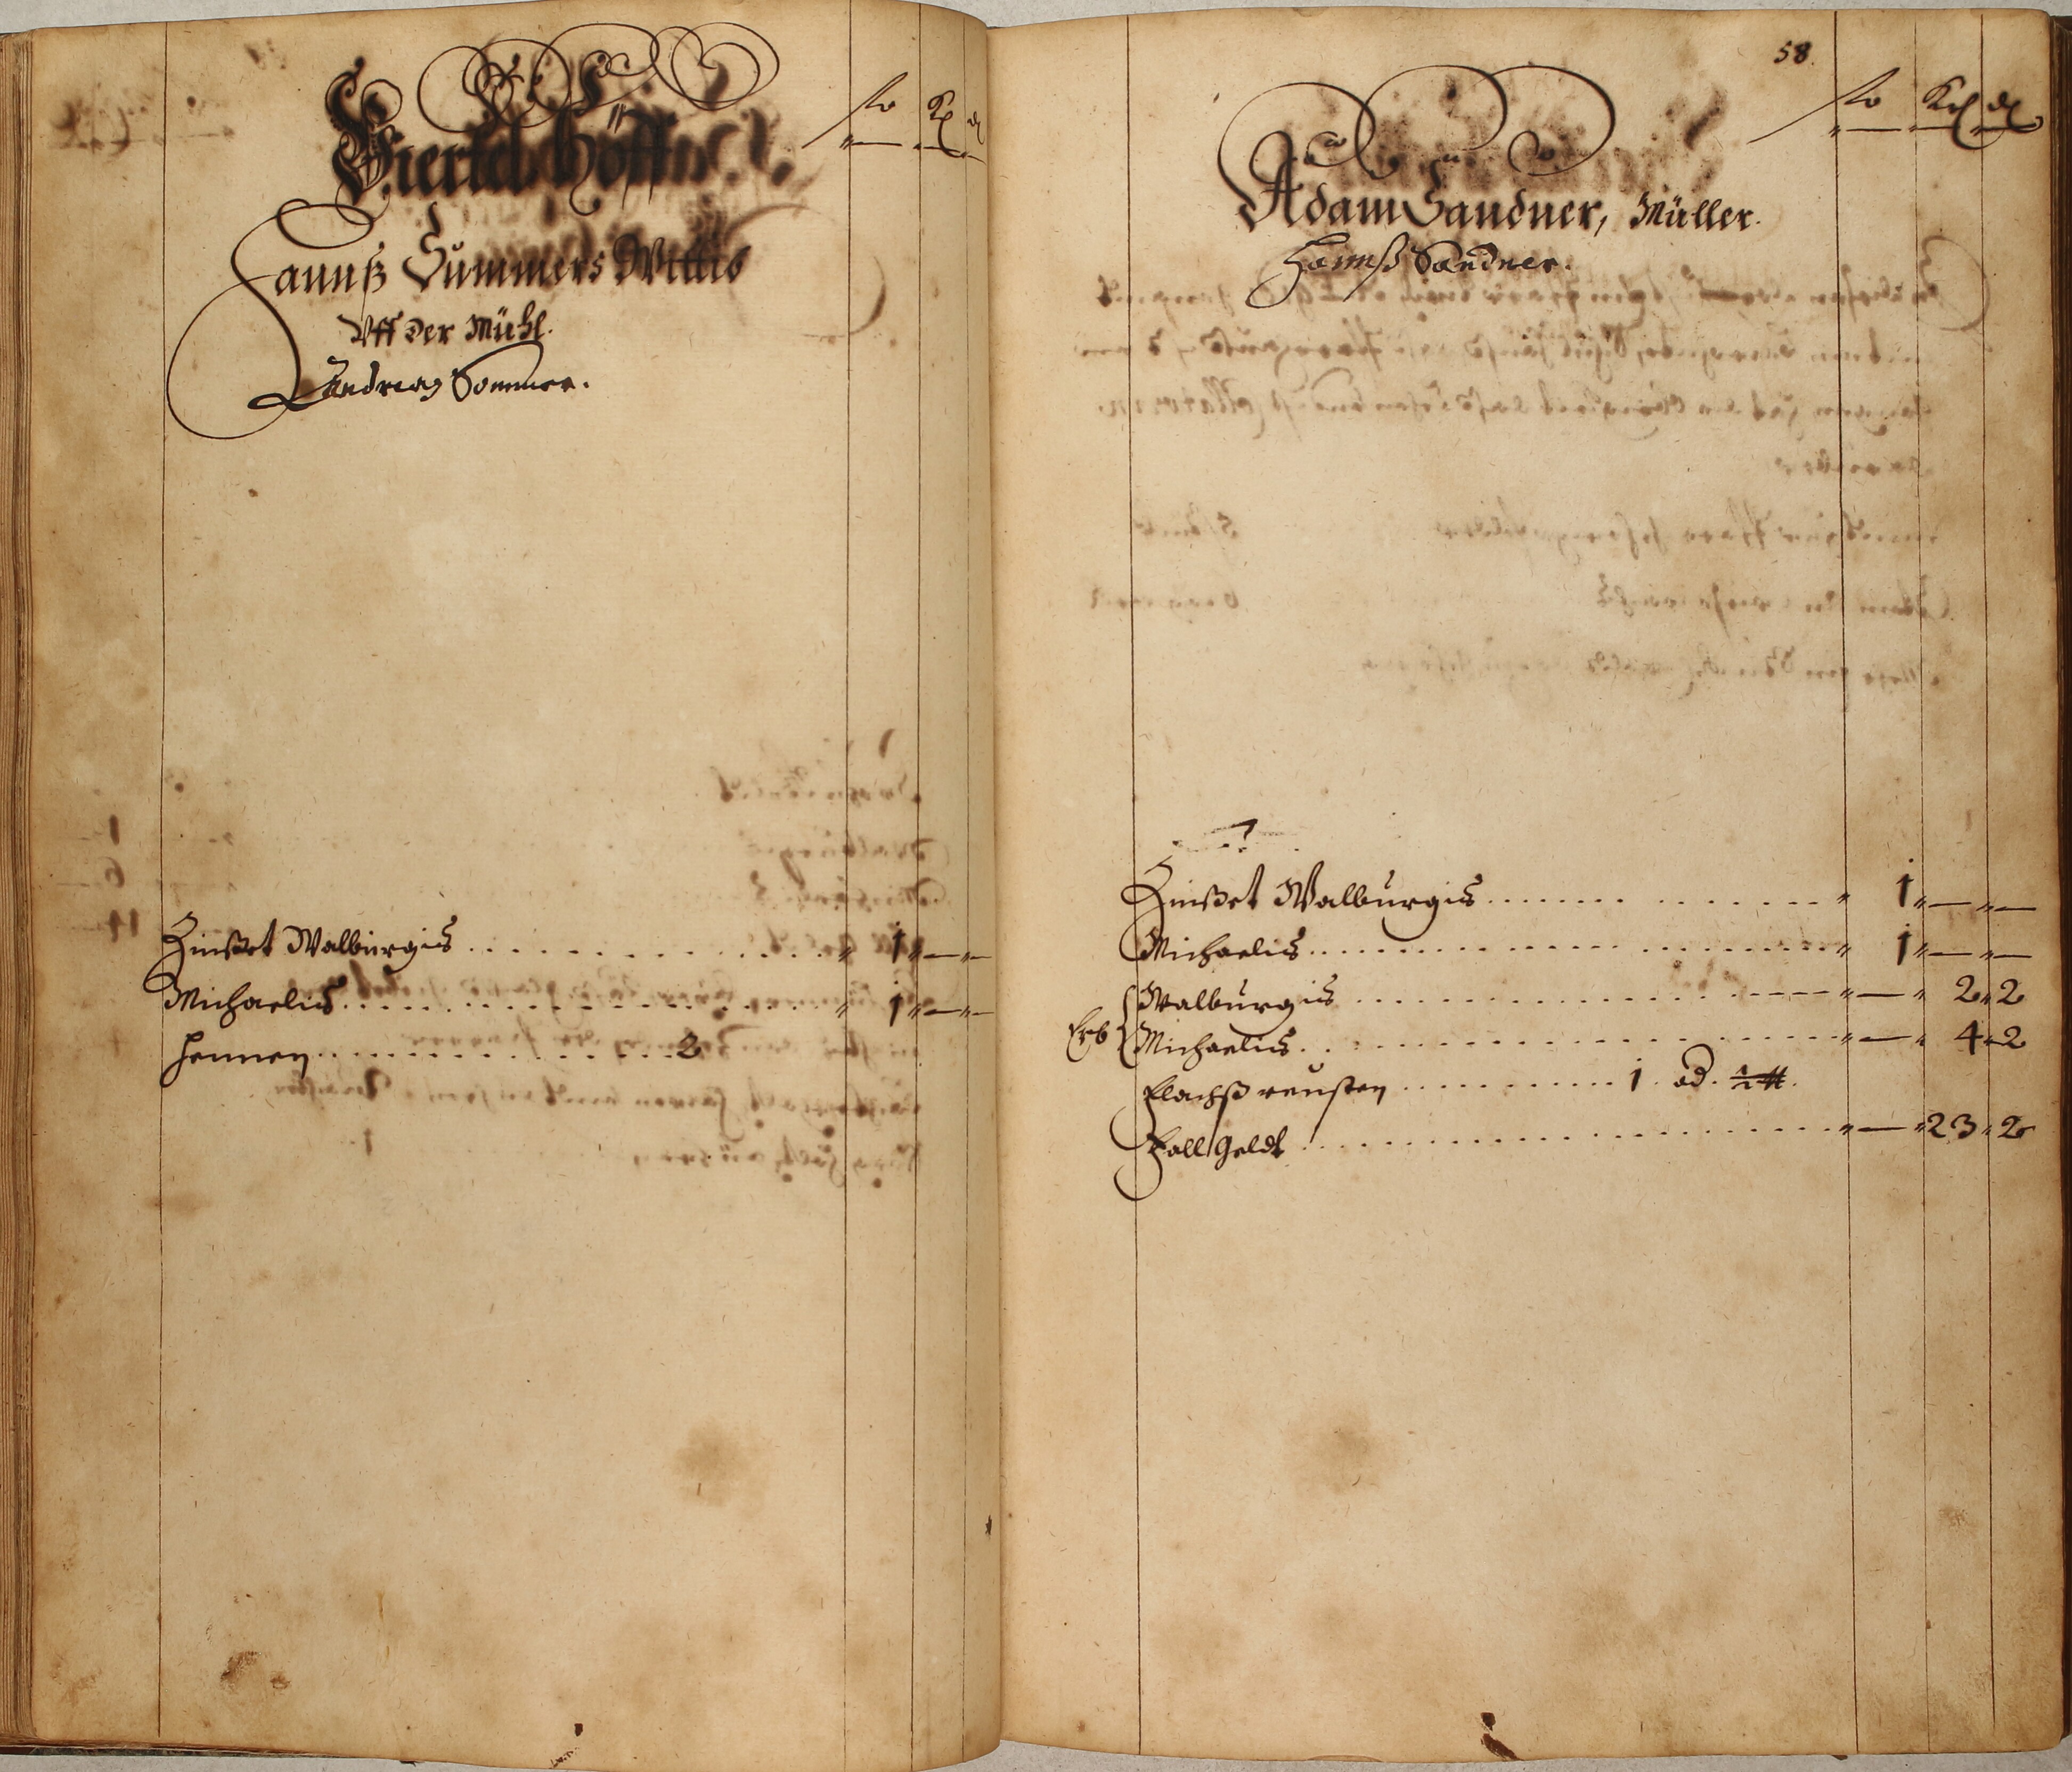 Viertel Höff
ßo Kr ₰
Hannß Summers Wittib
Vff der Mühl.
Andreas Sommer.
Zinßet Walburgis . . . . . . . . . . " 1 " — " —
Michaelis . . . . . . . . . . " 1 " — " —
Hennen . . . . . . . . . . 2
58.
ßo Kr ₰
Adam Sandner, Müller.
Hannß Sandner.
Zinßet Walburgis . . . . . . . . . . " 1 " — " —
Michaelis . . . . . . . . . . " 1 " — " —
Walburgis . . . . . . . . . . " — " 2 " 2
Erb Michaelis . . . . . . . . . . " — " 4 " 2
Flachß reusten . . . . . . . . . . 1 . od.
Fall Geldt . . . . . . . . . . " — " 23 " 2